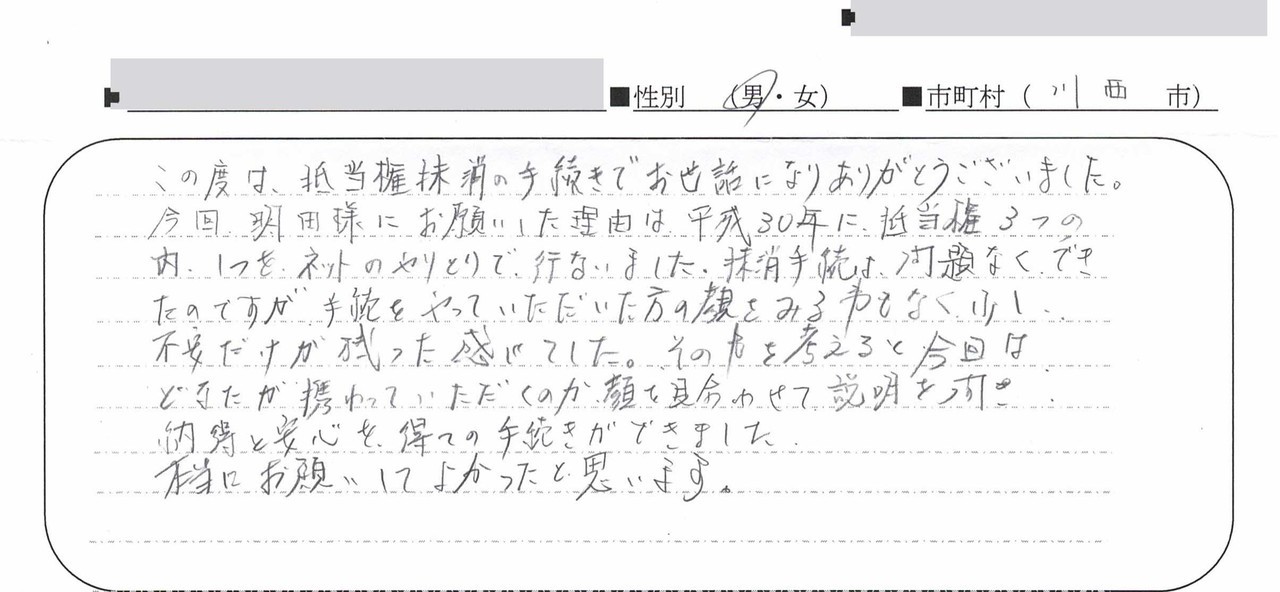 ■性別 (男・女) ■市町村 ( 川西 市)
この度は、抵当権抹消の手続きでお世話になりありがとうございました。
今回、明田様にお願いした理由は、平成30年に、抵当権3つの
内、1つを、ネットのやりとりで、行ないました。抹消手続は、問題なくでき
たのですが、手続をやっていただいた方の顔をみる事もなく、少し、
不安だけが残った感じでした。その事を考えると今回は、
どなたが携わっていただくのか、顔を見合わせて、説明を頂き、
納得と安心を得ての手続きができました。
本当にお願いしてよかったと思います。